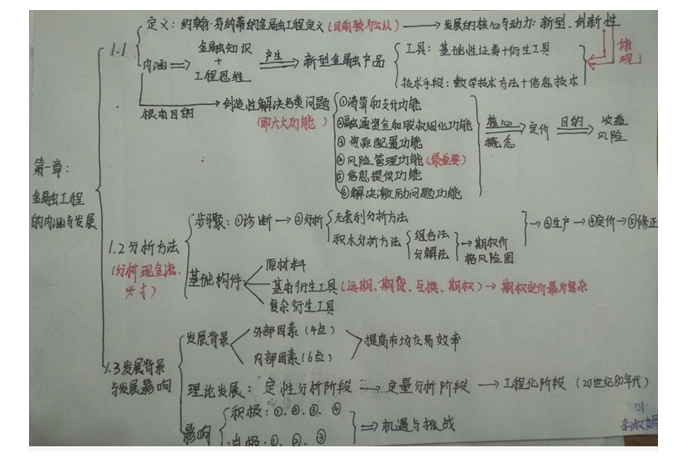 第一章:
金融工程
的内涵与发展
1.1
定义: 约翰·芬纳蒂的金融工程定义(目前较为公认) → 发展的核心与动力: 新型、创新性
体现
内涵 ⇒ 金融知识 + 工程思维 产生 ⇒ 新型金融产品
工具: 基础性证券+衍生工具
技术手段: 数学技术方法+信息技术
根本目的 → 创造性解决各类问题
(即六大功能)
①清算和支付功能
②融通资金和股权细化功能
③资源配置功能
④风险管理功能(最重要)
⑤信息提供功能
⑥解决激励问题功能
核心概念 ⇒ 定价 目的 ⇒ 收益 风险
1.2分析方法
(分析现金流
步骤: ①诊断 → ②分析
无套利分析方法
积木分析方法
组合法
分解法
→ 期权价格风险图
→ ③生产 → ④定价 → ⑤修正
基础构件
原材料
基本衍生工具(远期、期货、互换、期权) → 期权定价最为复杂
复杂衍生工具
1.3发展背景
与发展影响
发展背景
外部因素(4点)
内部因素(6点)
提高市场交易效率
理论发展: 定性分析阶段 → 定量分析阶段 → 工程化阶段 (20世纪80年代)
影响
积极: ①、②、③、④
消极: ①、②、③
⇒ 机遇与挑战
01